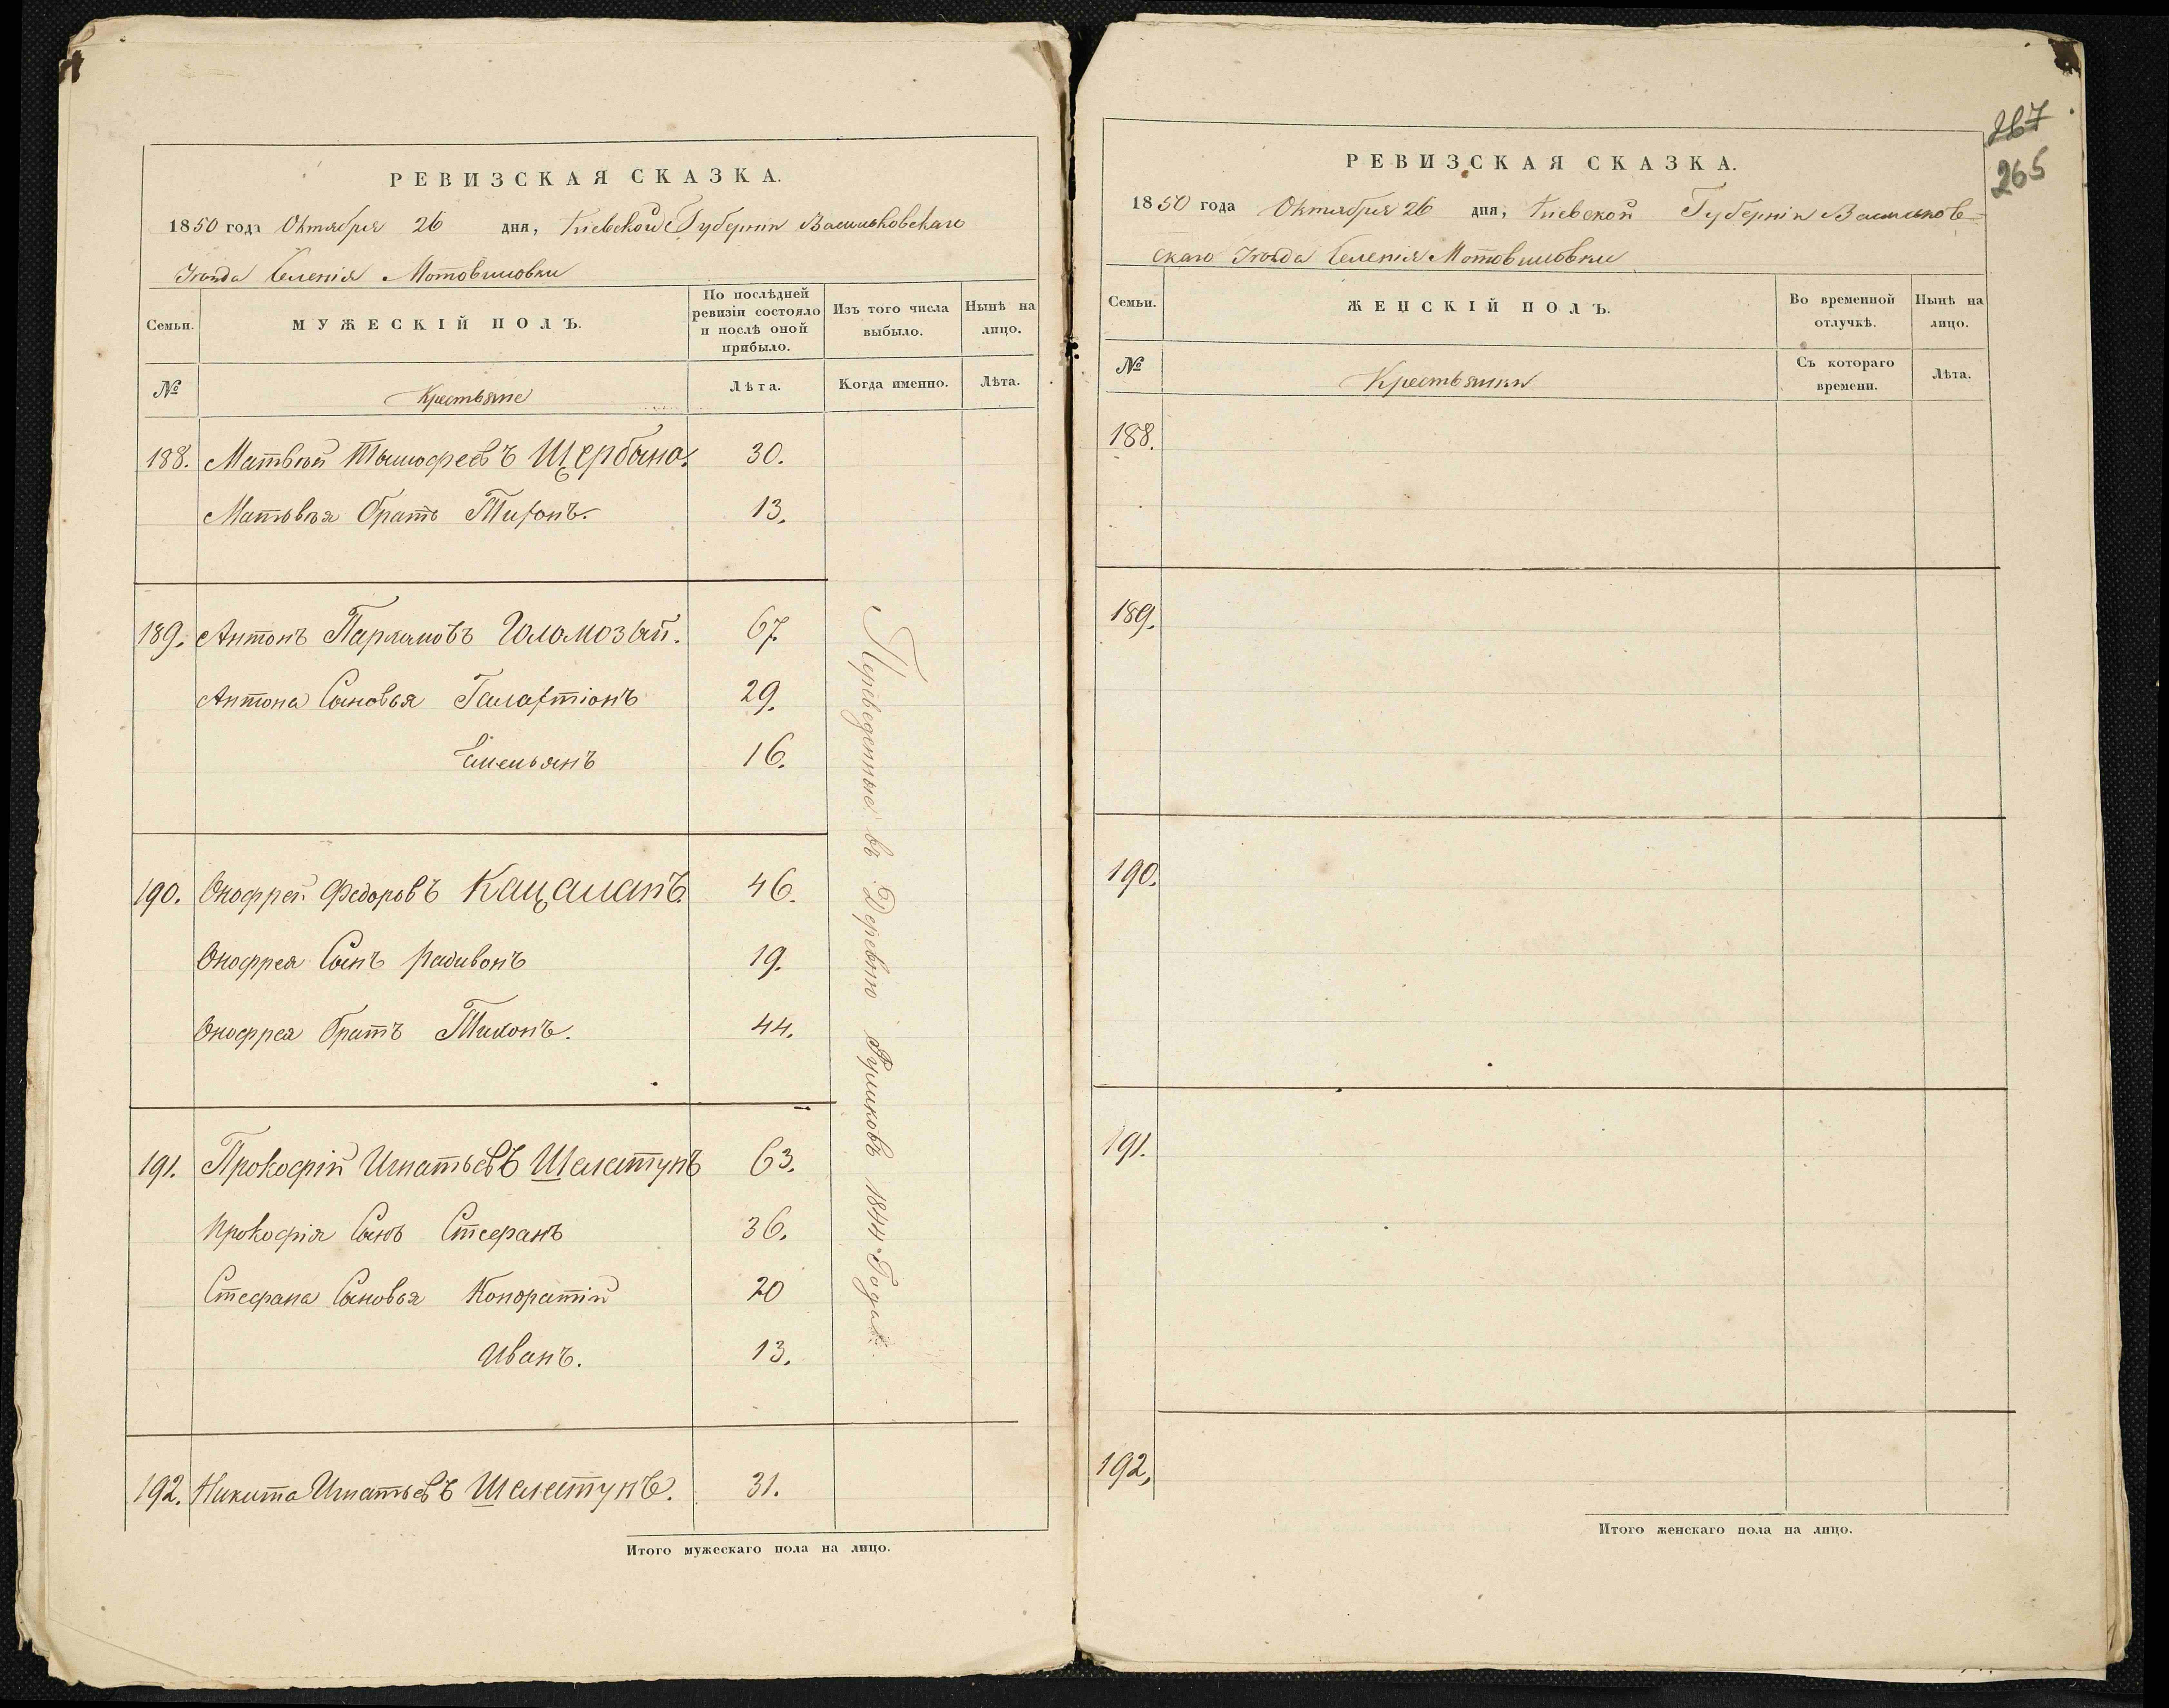 РЕВИЗСКАЯ СКАЗКА.
1850 года Октября 26 дня, Кіевской Губерніи Васильковскаго
Уѣзда Селенія Мотовиловки
Семьи.
МУЖЕСКІЙ ПОЛЪ.
По послѣдней ревизіи состояло и послѣ оной прибыло.
Изъ того числа выбыло.
Нынѣ на лицо.
№
Крестьяне
Лѣта.
Когда именно.
Лѣта.
188. Матвѣй Тимофеевъ Щербина. 30.
Матвѣя братъ Тихонъ. 13.
189. Антонъ Парламовъ Голомозый. 67.
Антона Сыновья Галактіонъ 29.
Емельянъ 16.
190. Онофрей Федоровъ Кацаланъ. 46.
Онофрея Сынъ Радивонъ 19.
Онофрея братъ Тихонъ. 44.
191. Прокофій Игнатьевъ Шелестунъ 63.
Прокофія Сынъ Стефанъ 36.
Стефана Сыновья Кондратій 20
Иванъ. 13.
192. Никита Игнатьевъ Шелестунъ. 31.
Переведенные въ Деревню 1844 Года.
Итого мужескаго пола на лицо.
267
265
РЕВИЗСКАЯ СКАЗКА.
1850 года Октября 26 дня, Кіевской Губерніи Васильков=
скаго Уѣзда Селенія Мотовиловки
Семьи.
ЖЕНСКІЙ ПОЛЪ.
Во временной отлучкѣ.
Нынѣ на лицо.
№
Крестьянки
Съ котораго времени.
Лѣта.
188.
189.
190.
191.
192.
Итого женскаго пола на лицо.